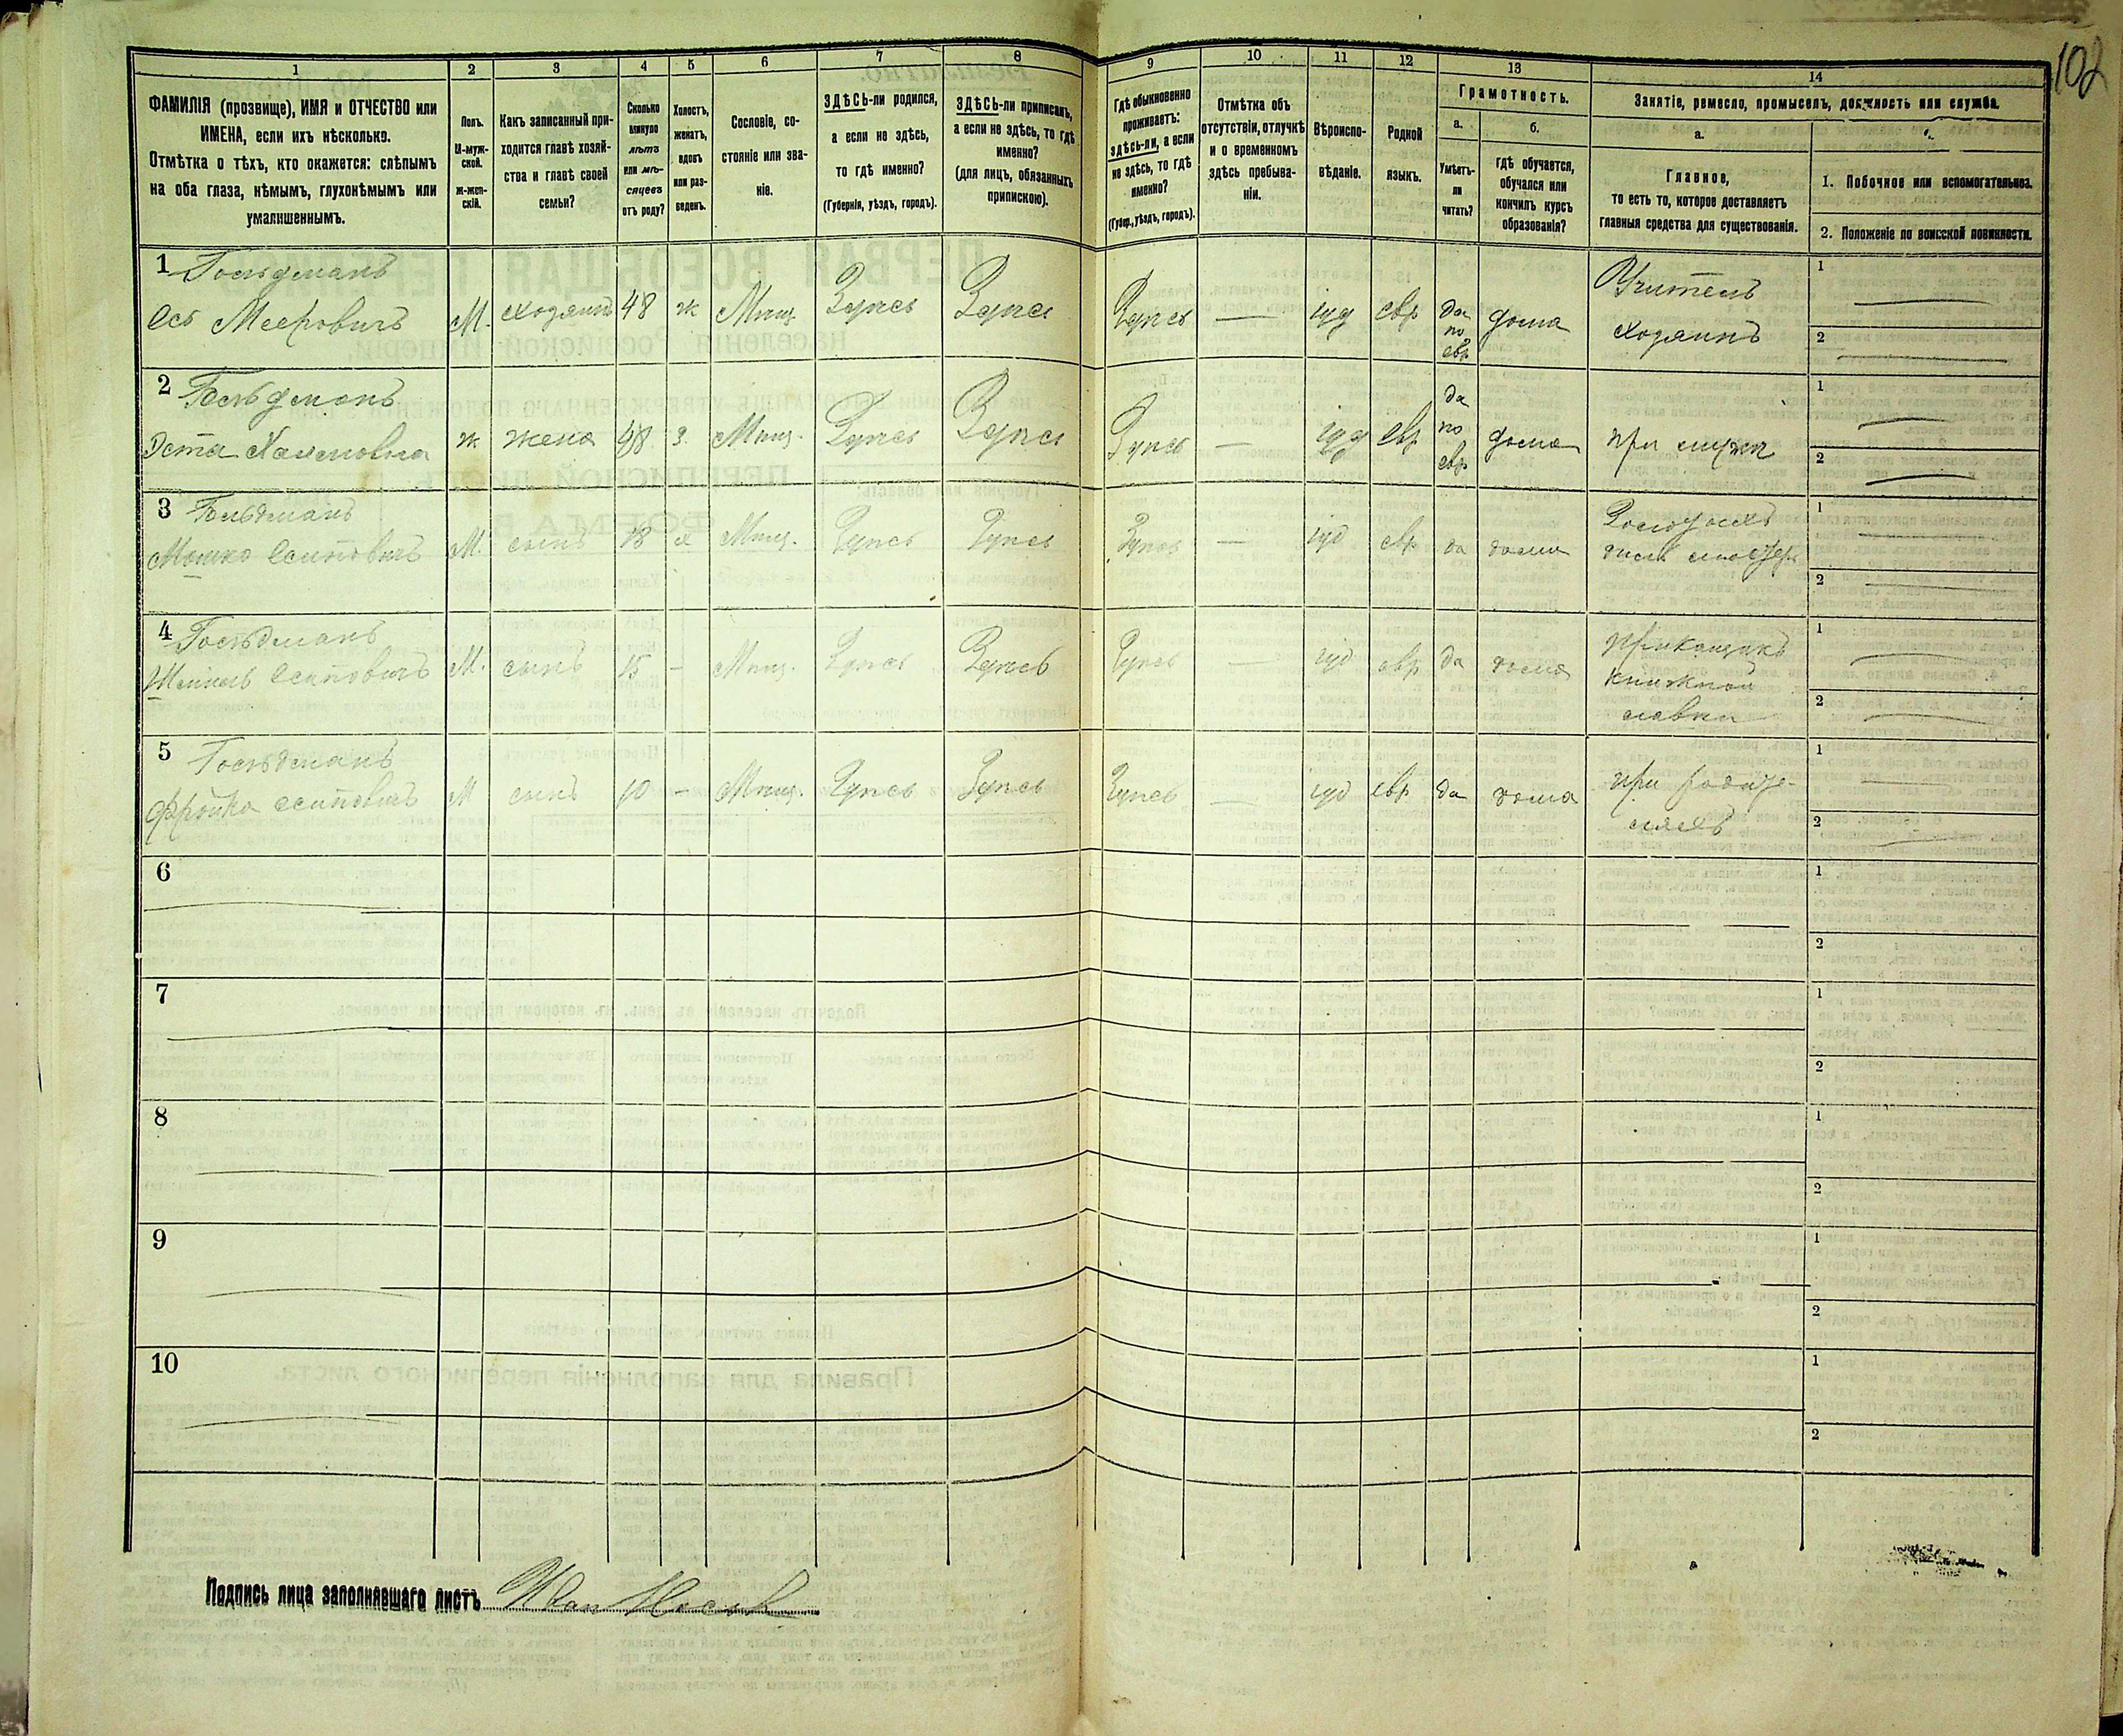 102
1
2
3
4
5
6
7
8
9
10
11
12
13
14
ФАМИЛІЯ (прозвище), ИМЯ и ОТЧЕСТВО или
ИМЕНА, если ихъ нѣсколько.
Отмѣтка о тѣхъ, кто окажется: слѣпымъ
на оба глаза, нѣмымъ, глухонѣмымъ или
умалишеннымъ.
Полъ.
М-муж-
ской.
ж-жен-
скій.
Какъ записанный при-
ходится главѣ хозяй-
ства и главѣ своей
семьи?
Сколько
минуло
лѣтъ
или мѣ-
сяцевъ
отъ роду?
Холостъ,
женатъ,
вдовъ
или раз-
веденъ.
Сословіе, со-
стояніе или зва-
ніе.
ЗДѢСЬ-ли родился,
а если не здѣсь,
то гдѣ именно?
(Губернія, уѣздъ, городъ).
ЗДѢСЬ-ли приписанъ,
а если не здѣсь, то гдѣ
именно?
(для лицъ, обязанныхъ
припискою).
Гдѣ обыкновенно
проживаетъ:
здѣсь-ли, а если
не здѣсь, то гдѣ
именно?
(Губер., уѣздъ, городъ).
Отмѣтка объ
отсутствіи, отлучкѣ
и о временномъ
здѣсь пребыва-
ніи.
Вѣроиспо-
вѣданіе.
Родной
языкъ.
Грамотность.
а.
Умѣетъ-
ли
читать?
б.
гдѣ обучается,
обучался или
кончилъ курсъ
образованія?
Занятіе, ремесло, промыселъ, должность или служба.
а.
Главное,
то есть то, которое доставляетъ
главныя средства для существованія.
1. Побочное или вспомогательное.
2. Положеніе по воинской повинности.
1 Гольдманъ
Ось Мееровичъ
М.
хозяинъ
48
ж
Мѣщ.
Здѣсь
Здѣсь
Здѣсь
—
іуд
евр
да
по
евр
дома
Учитель
хозяинъ
1
2
2 Гольдманъ
Эста
ж
жена
48
з.
Мѣщ.
Здѣсь
Здѣсь
Здѣсь
—
іуд
евр
да
по
евр
дома
при мужѣ
1
2
3 Гольдманъ
Мошко Осиповичъ
М.
сынъ
18
х
Мѣщ.
Здѣсь
Здѣсь
Здѣсь
—
іуд
евр
да
дома
1
2
4 Гольдманъ
Осиповичъ
М.
сынъ
15
-
Мѣщ.
Здѣсь
Здѣсь
Здѣсь
—
іуд
евр
да
дома
Прикащикъ
книжной
лавки
1
2
5 Гольдманъ
Фройка Осиповичъ
М
сынъ
10
-
Мѣщ.
Здѣсь
Здѣсь
Здѣсь
—
іуд
евр
да
дома
при родите-
ляхъ
1
2
6
1
2
7
1
2
8
1
2
9
1
2
10
1
2
Подпись лица заполнявшаго листъ Иван